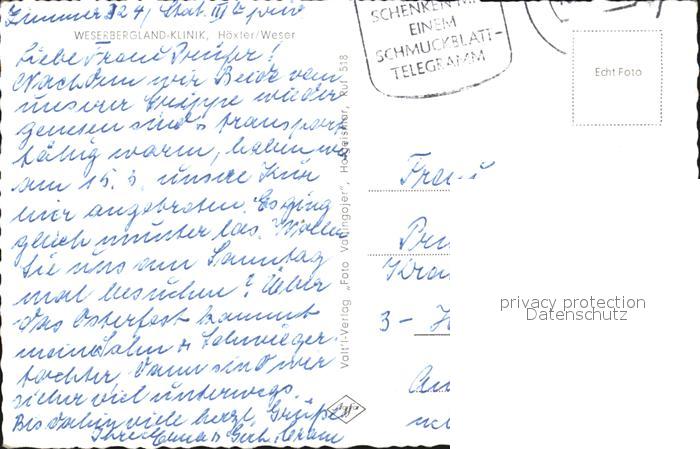 Zimmer 324, Stat. III
WESERBERGLAND-KLINIK, Höxter/Weser
Liebe Frau !
Nachdem wir Beide von
unserer Grippe wieder
genesen sind u. transport
fähig waren, haben wir
am 15. 3. unsere Kur
hier angetreten. Es ging
gleich munter los. Wollen
Sie uns am Sonntag
mal besuchen? Ueber
das Osterfest kommt
mein Sohn u. Schwieger-
tochter. Dann sind wir
sicher viel unterwegs.
Bis dahin viele herzl. Grüße
Ihre u. Gerh.
Valt'l-Verlag „Foto Valtingojer", Hofgeismar, Ruf 518
Agfa
SCHENKEN MIT
EINEM
SCHMUCKBLATT-
TELEGRAMM
Echt Foto
Frau
3 –
privacy protection
Datenschutz